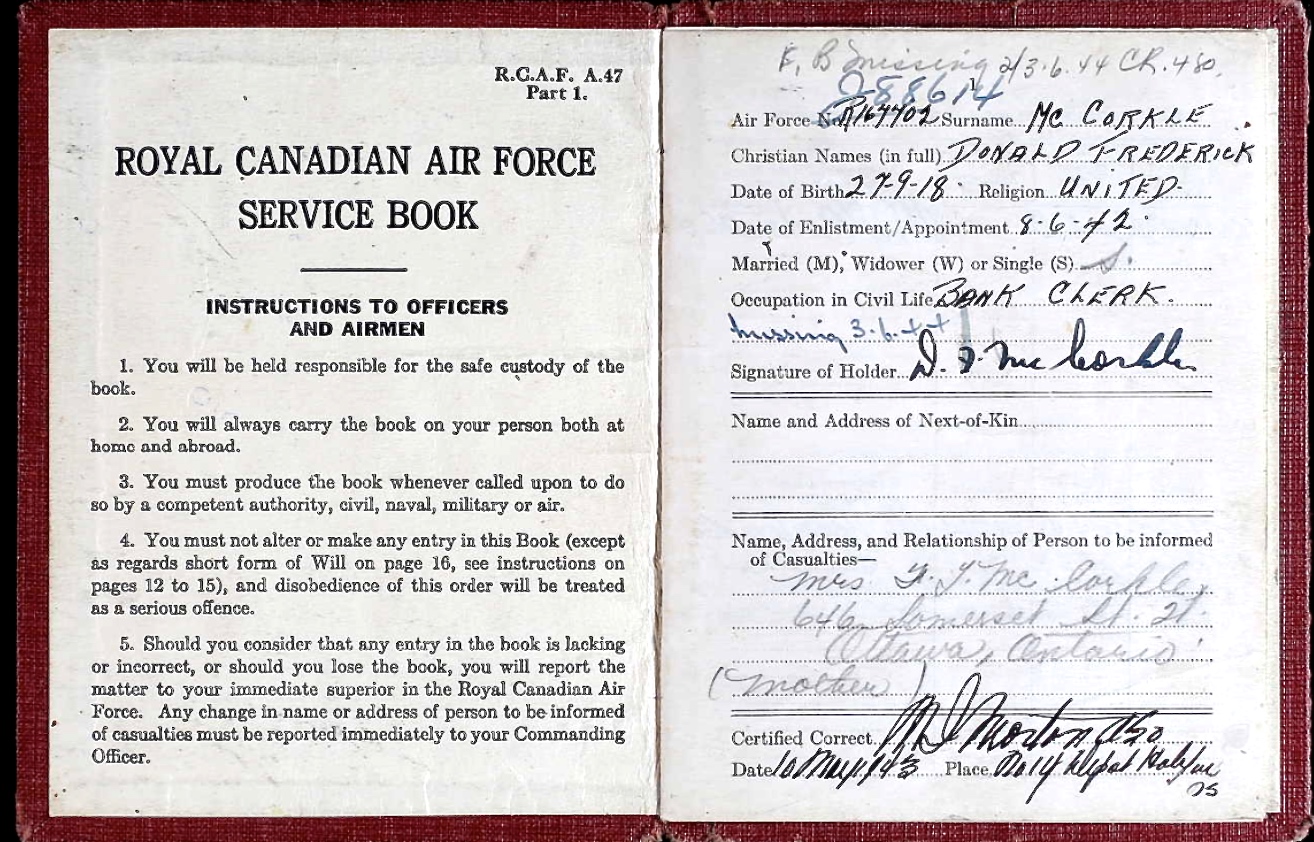 R.C.A.F. A.47
Part 1.
ROYAL CANADIAN AIR FORCE
SERVICE BOOK
INSTRUCTIONS TO OFFICERS
AND AIRMEN
1. You will be held responsible for the safe custody of the
book.
2. You will always carry the book on your person both at
home and abroad.
3. You must produce the book whenever called upon to do
so by a competent authority, civil, naval, military or air.
4. You must not alter or make any entry in this Book (except
as regards short form of Will on page 16, see instructions on
pages 12 to 15), and disobedience of this order will be treated
as a serious offence.
5. Should you consider that any entry in the book is lacking
or incorrect, or should you lose the book, you will report the
matter to your immediate superior in the Royal Canadian Air
Force. Any change in name or address of person to be informed
of casualties must be reported immediately to your Commanding
Officer.
B missing 2/3.6.44 CR.480.
J-88614
1
Air Force No. R164402 Surname Mc CORKLE
Christian Names (in full) DONALD FREDERICK
Date of Birth 27-9-18 Religion UNITED
Date of Enlistment/Appointment 8-6-42
Married (M), Widower (W) or Single (S) S.
Occupation in Civil Life BANK CLERK.
missing 3-6-44
Signature of Holder D. F. McCorkle
Name and Address of Next-of-Kin
Name, Address, and Relationship of Person to be informed
of Casualties—
Mrs. McCorkle,
646 Somerset St. W.
Ottawa, Ontario
(Mother)
Certified Correct Morton
Date 10 May/43 Place Depot Halifax
NS